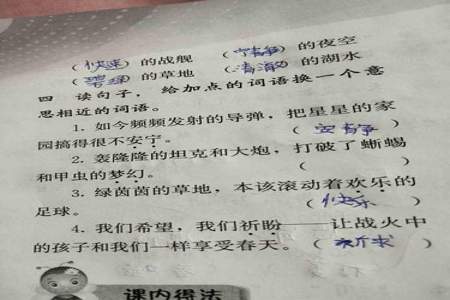 （快速）的战舰 （宁静）的夜空
（碧绿）的草地 （清澈）的湖水
四 读句子，给加点的词语换一个意
思相近的词语。
1. 如今频频发射的导弹，把星星的家
园搞得很不安宁。（安静）
2. 轰隆隆的坦克和大炮，打破了蜥蜴
和甲虫的梦幻。（ ）
3. 绿茵茵的草地，本该滚动着欢乐的
足球。（快乐）
4. 我们希望，我们祈盼——让战火中
的孩子和我们一样享受春天。（祈求）
课内得法